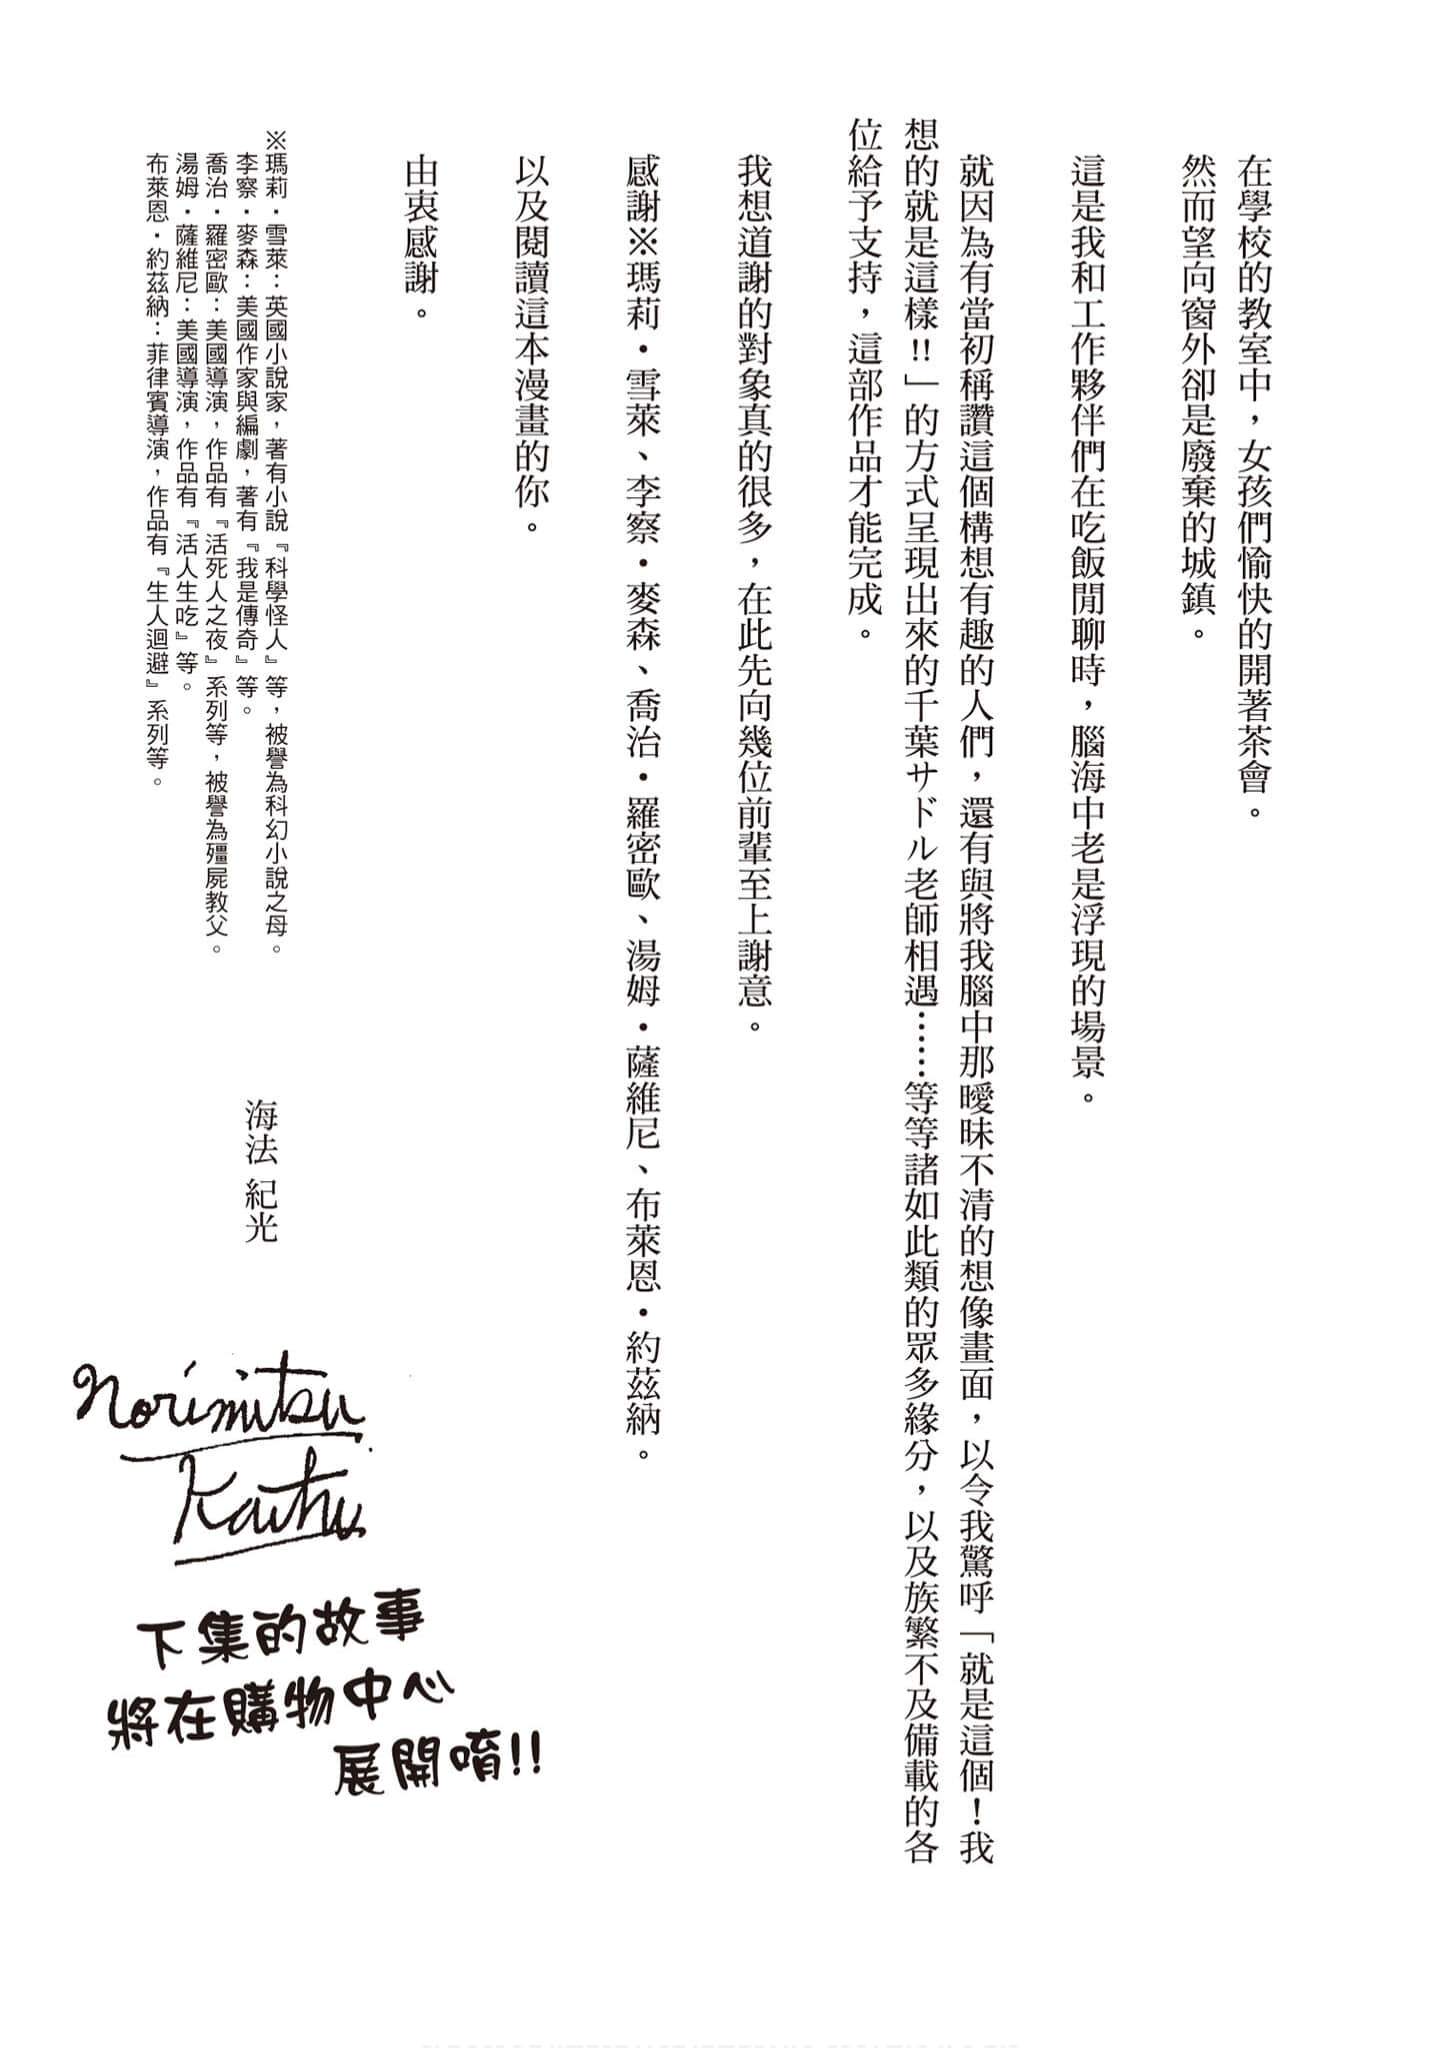 在學校的教室中，女孩們愉快的開著茶會。
然而望向窗外卻是廢棄的城鎮。
這是我和工作夥伴們在吃飯閒聊時，腦海中老是浮現的場景。
就因為有當初稱讚這個構想有趣的人們，還有與將我腦中那曖昧不清的想像畫面，以令我驚呼「就是這個！我
想的就是這樣!!」的方式呈現出來的千葉サドル老師相遇……等等諸如此類的眾多緣分，以及族繁不及備載的各
位給予支持，這部作品才能完成。
我想道謝的對象真的很多，在此先向幾位前輩至上謝意。
感謝※瑪莉・雪萊、李察・麥森、喬治・羅密歐、湯姆・薩維尼、布萊恩・約茲納。
以及閱讀這本漫畫的你。
由衷感謝。
※瑪莉・雪萊：英國小說家，著有小說『科學怪人』等，被譽為科幻小說之母。
李察・麥森：美國作家與編劇，著有『我是傳奇』等。
喬治・羅密歐：美國導演，作品有『活死人之夜』系列等，被譽為殭屍教父。
湯姆・薩維尼：美國導演，作品有『活人生吃』等。
布萊恩・約茲納：菲律賓導演，作品有『生人迴避』系列等。
海法 紀光
Norimitsu
Kaihu
下集的故事
將在購物中心
展開唷!!